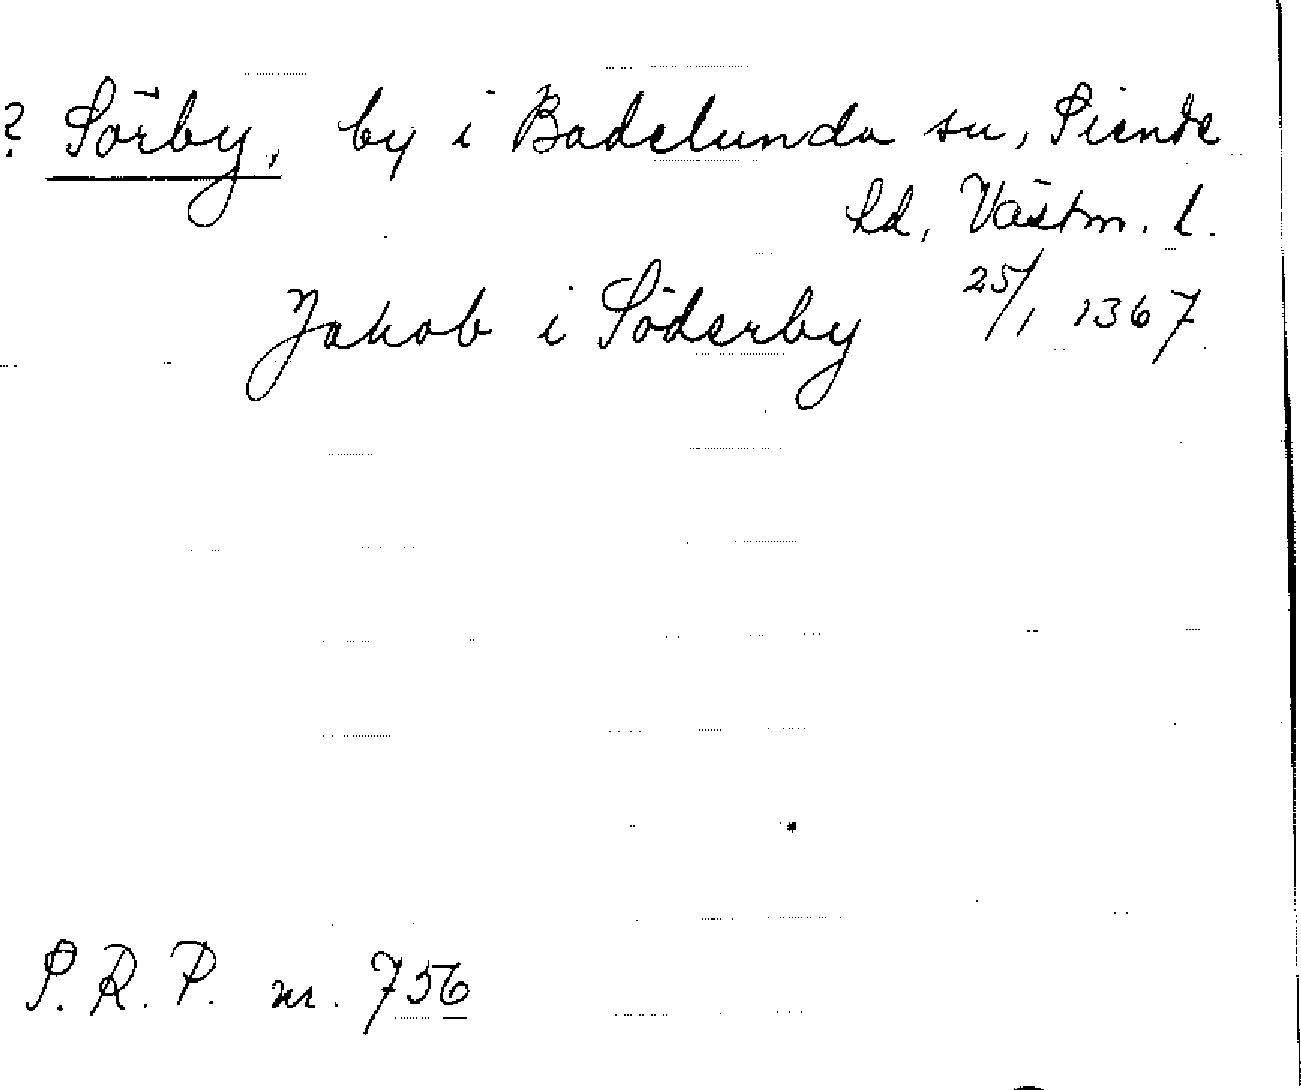 ? Sörby, by i Badelunda sn, Siende
hd, Västm. l.
Jakob i Söderby 25/1 1367
S.R.P. nr. 756